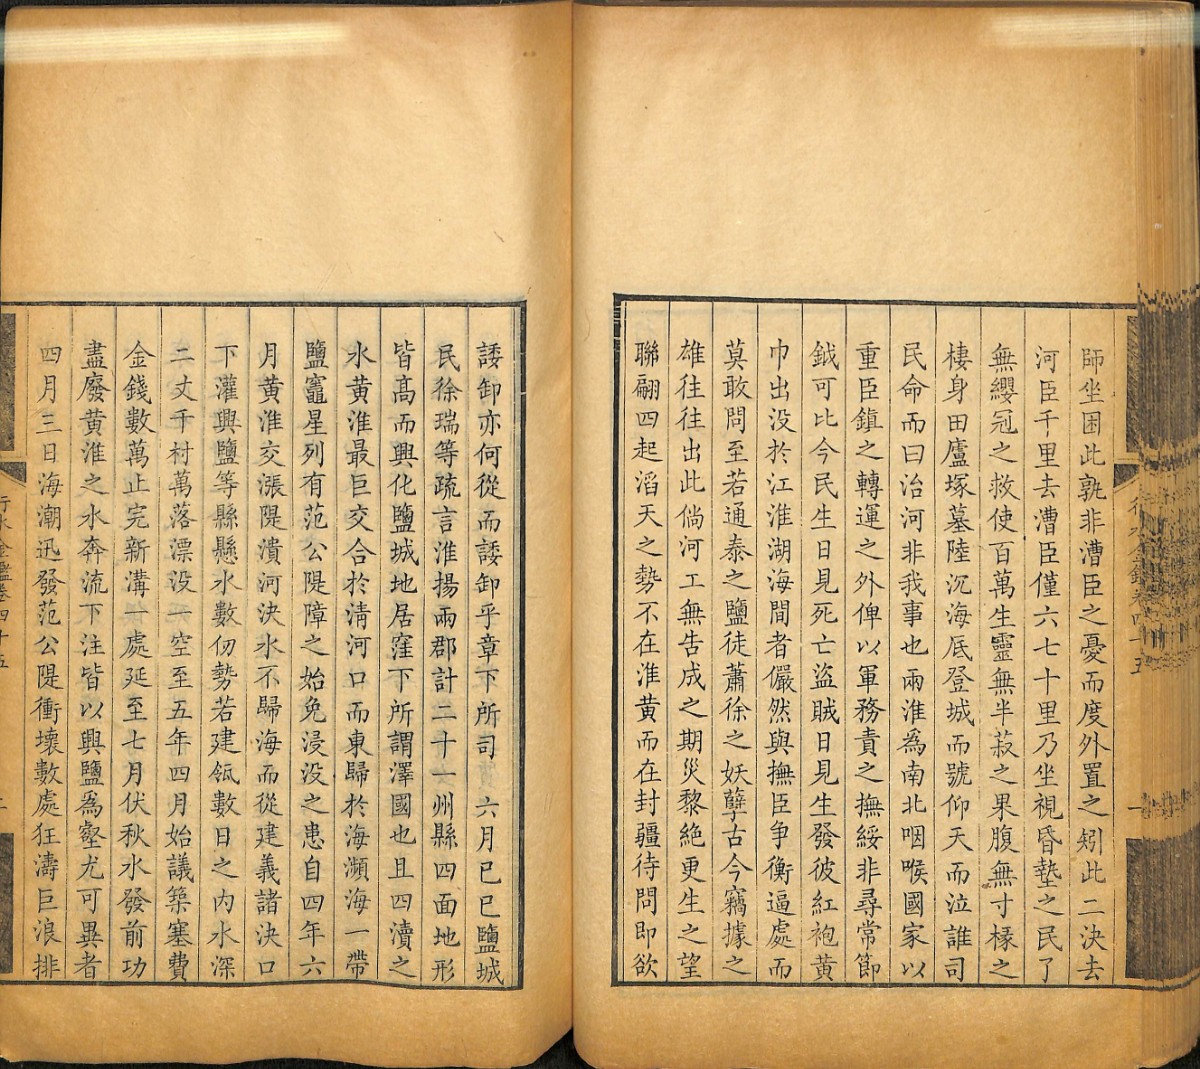 師坐困此孰非漕臣之憂而度外置之矧此二決去
河臣千里去漕臣僅六七十里乃坐視昏墊之民了
無纓冠之救使百萬生靈無半菽之果腹無寸椽之
棲身田廬塚墓陸沉海底登城而號仰天而泣誰司
民命而曰治河非我事也兩淮為南北咽喉國家以
重臣鎮之轉運之外俾以軍務責之撫綏非尋常節
鉞可比今民生日見死亡盜賊日見生發彼紅袍黄
巾出没於江淮湖海間者儼然與撫臣争衡逼處而
莫敢問至若通泰之鹽徒蕭徐之妖孽古今竊據之
雄往往出此倘河工無告成之期災黎絶更生之望
聯翩四起滔天之勢不在淮黄而在封疆待問即欲
諉卸亦何從而諉卸乎章下所司 六月己巳鹽城
民徐瑞等疏言淮揚兩郡計二十一州縣四面地形
皆高而興化鹽城地居窪下所謂澤國也且四瀆之
水黄淮最巨交合於清河口而東歸於海瀕海一帶
鹽竈星列有范公隄障之始免浸没之患自四年六
月黄淮交漲隄潰河決水不歸海而從建義諸決口
下灌興鹽等縣懸水數仞勢若建瓴數日之内水深
二丈千村萬落漂没一空至五年四月始議築塞費
金錢數萬止完新溝一處延至七月伏秋水發前功
盡廢黄淮之水奔流下注皆以興鹽爲壑尤可異者
四月三日海潮迅發范公隄衝壞數處狂濤巨浪排
行水金鑑卷四十五